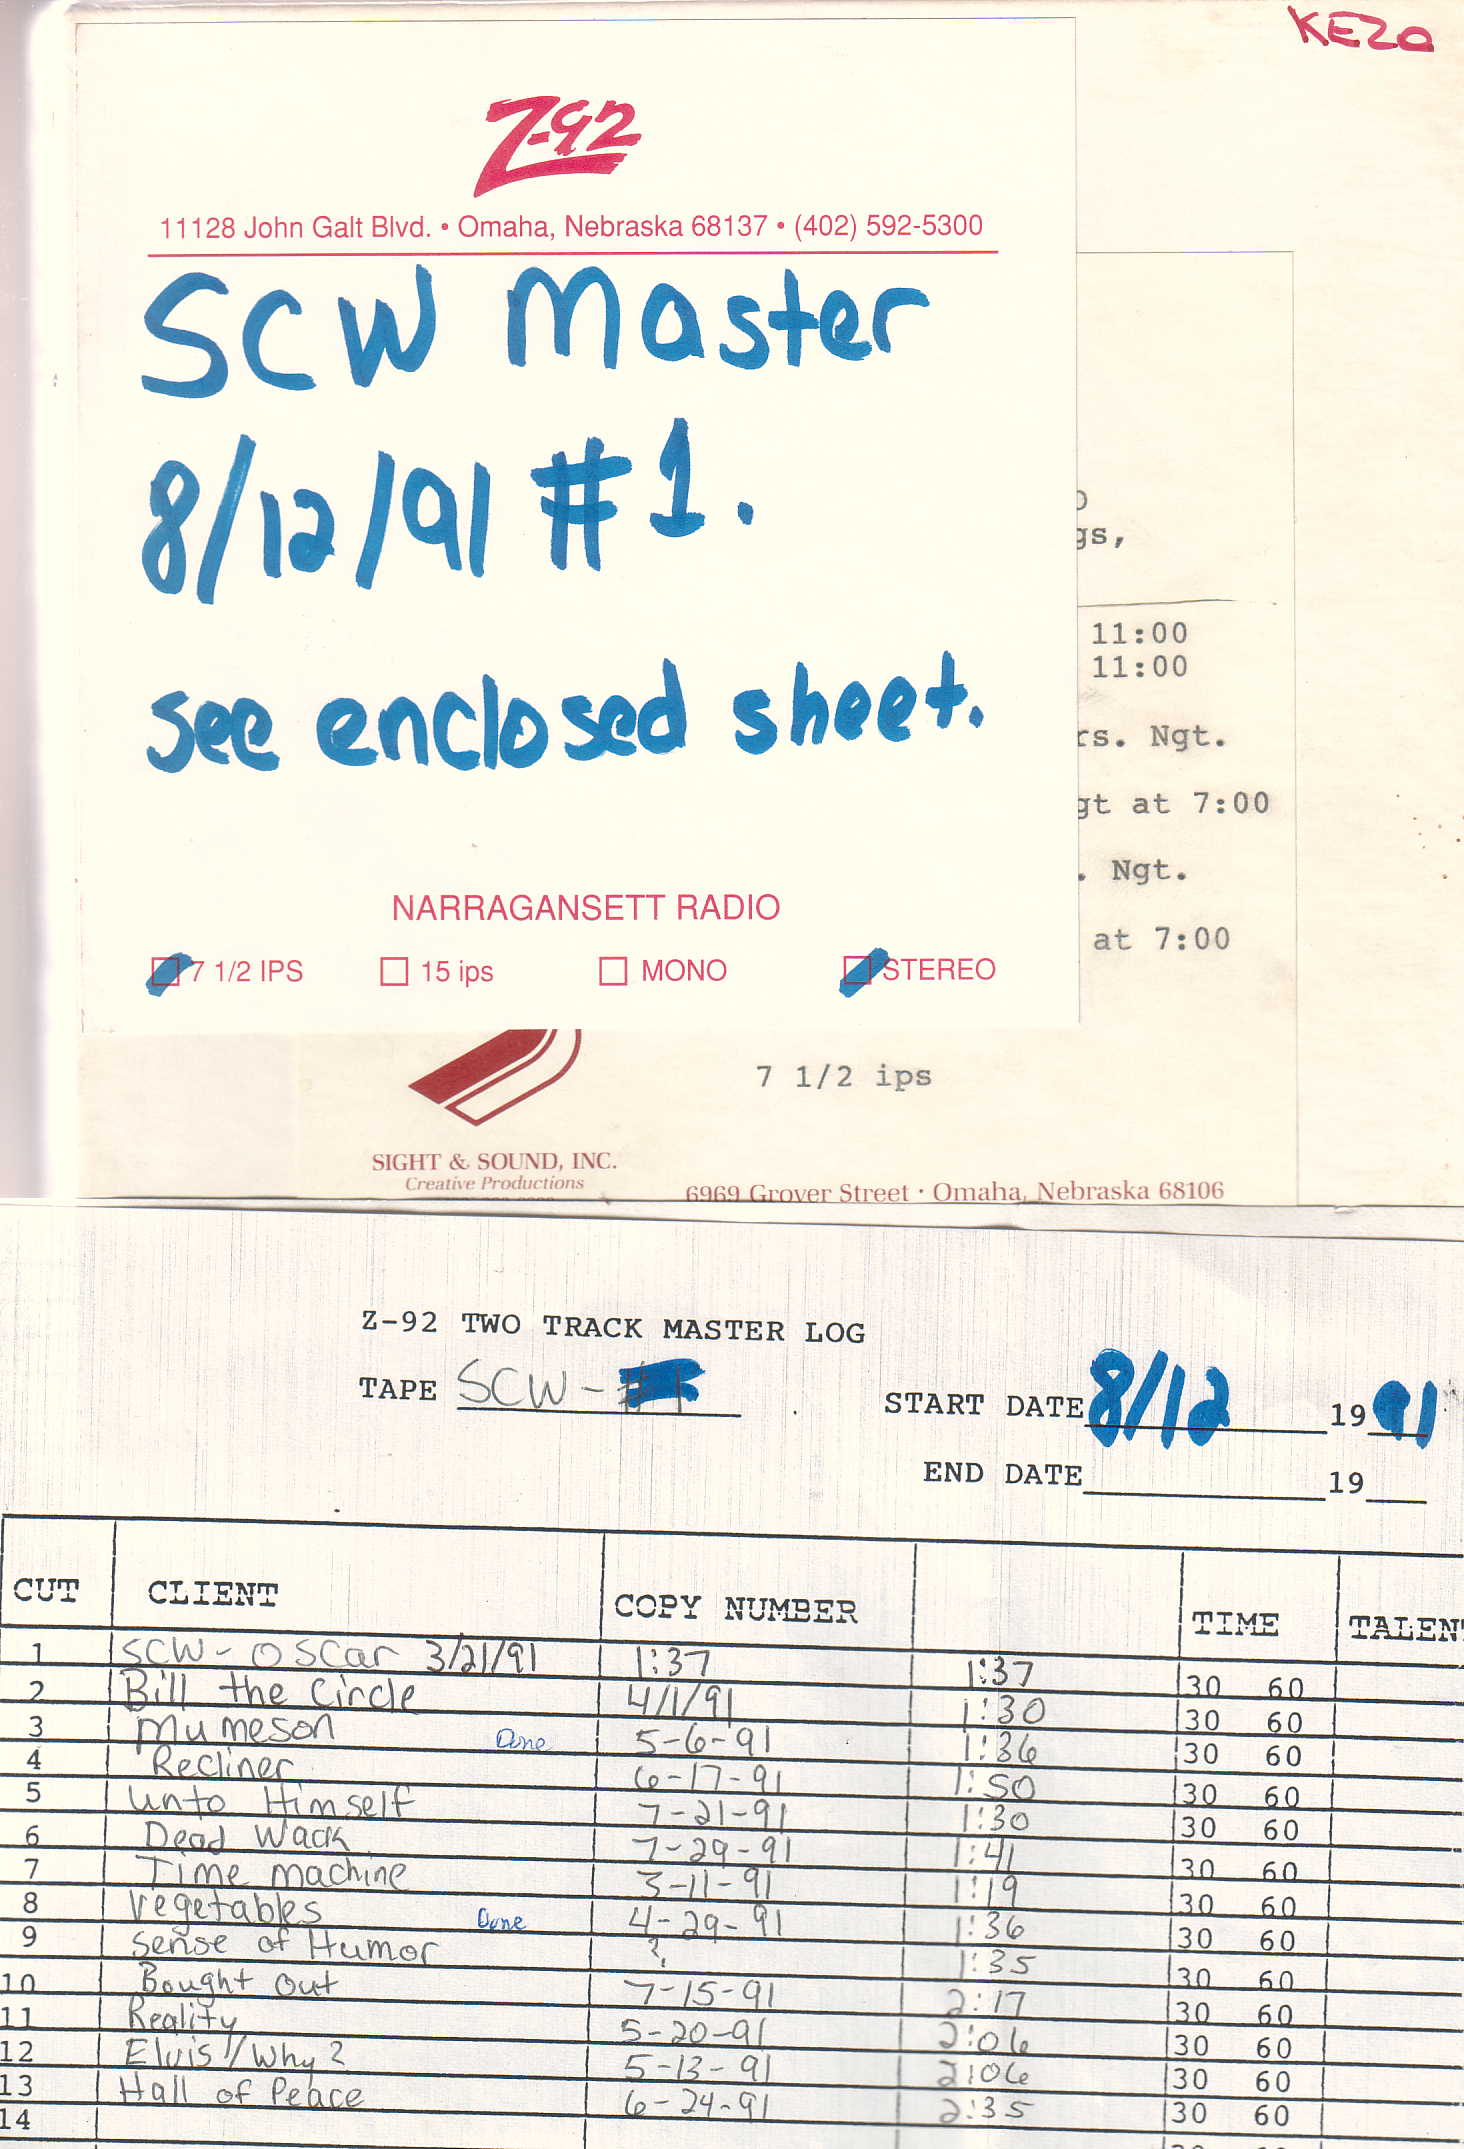 KEZO
Z-92
11128 John Galt Blvd. • Omaha, Nebraska 68137 • (402) 592-5300
SCW Master
8/12/91 #1.
see enclosed sheet.
gs,
11:00
11:00
rs. Ngt.
gt at 7:00
. Ngt.
at 7:00
NARRAGANSETT RADIO
7 1/2 IPS 15 ips MONO STEREO
7 1/2 ips
SIGHT & SOUND, INC.
Creative Productions
6969 Grover Street • Omaha, Nebraska 68106
Z-92 TWO TRACK MASTER LOG
TAPE SCW-#1
START DATE 8/12 1991
END DATE 19
CUT CLIENT COPY NUMBER TIME TALENT
1 SCW-OSCar 3/21/91 1:37 1:37 30 60
2 Bill the Circle 4/1/91 1:30 30 60
3 Mumeson Done 5-6-91 1:36 30 60
4 Recliner 6-17-91 1:50 30 60
5 unto Himself 7-21-91 1:30 30 60
6 Dead Wack 7-29-91 1:41 30 60
7 Time Machine 3-11-91 1:19 30 60
8 Vegetables Done 4-29-91 1:36 30 60
9 Sense of Humor ? 1:35 30 60
10 Bought Out 7-15-91 2:17 30 60
11 Reality 5-20-91 2:06 30 60
12 Elvis//Why? 5-13-91 2:06 30 60
13 Hall of Peace 6-24-91 2:35 30 60
14